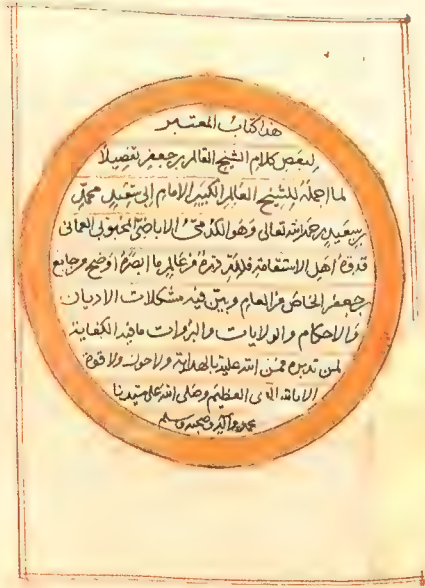 هذا كتاب المعتبر
لبعض كلام الشيخ العالم بن جعفر تفصيلاً
لما اجمله للشيخ العالم الكبير الامام ابي سعيد محمد بن
سعيد رحمه الله تعالى وهو الكدمي الاباضي المحبوبي العماني
قدوة اهل الاستقامة فلله دره من عالم ما ابصره اوضح من جامع
بن جعفر الخاص من العام وبين فيه مشكلات الاديان
والاحكام والولايات والبراءات ما فيه الكفاية
لمن تدبره ممن من الله عليه بالهداية ولا حول ولا قوة
الا بالله العلي العظيم وصلى الله على سيدنا
محمد وآله وصحبه وسلم